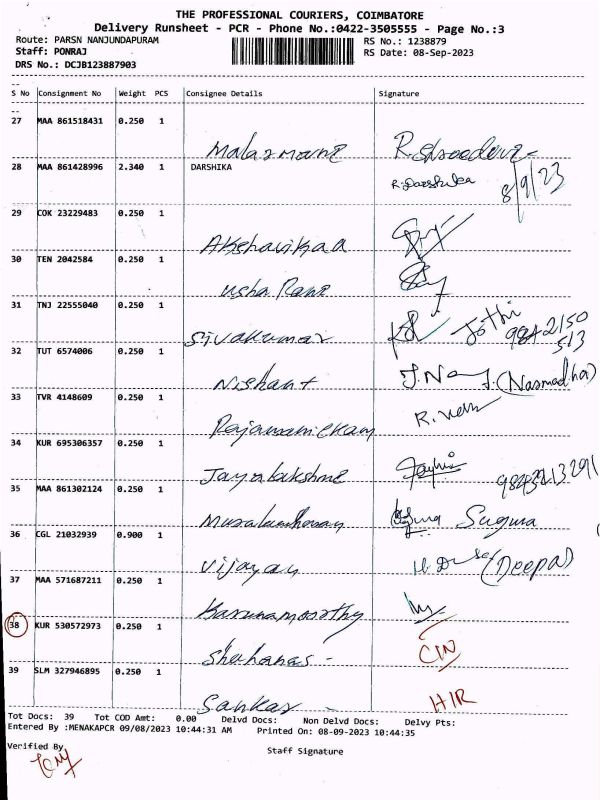 THE PROFESSIONAL COURIERS, COIMBATORE
Delivery Runsheet - PCR - Phone No.:0422-3505555 - Page No.:3
Route: PARSN NANJUNDAPURAM RS No.: 1238879
Staff: PONRAJ RS Date: 08-Sep-2023
DRS No.: DCJB123887903
S No Consignment No Weight PCS Consignee Details Signature
27 MAA 861518431 0.250 1
28 MAA 861428996 2.340 1 DARSHIKA R.Darshika 8/9/23
29 COK 23229483 0.250 1
Akshavikaa
30 TEN 2042584 0.250 1
Usha Rani
31 TNJ 22555040 0.250 1
Sivakumar Jothi 9842150
513
32 TUT 6574006 0.250 1
Nishant (Nasmadha)
33 TVR 4148609 0.250 1
Rajamanickam
34 KUR 695306357 0.250 1
Jayalakshmi
35 MAA 861302124 0.250 1
Suguna
36 CGL 21032939 0.900 1
Vijayan (Deepa)
37 MAA 571687211 0.250 1
Karunamoorthy
38 KUR 530572973 0.250 1
Shahanas - CIN
39 SLM 327946895 0.250 1
Sankar HIR
Tot Docs: 39 Tot COD Amt: 0.00 Delvd Docs: Non Delvd Docs: Delvy Pts:
Entered By :MENAKAPCR 09/08/2023 10:44:31 AM Printed On: 08-09-2023 10:44:35
Verified By
Staff Signature